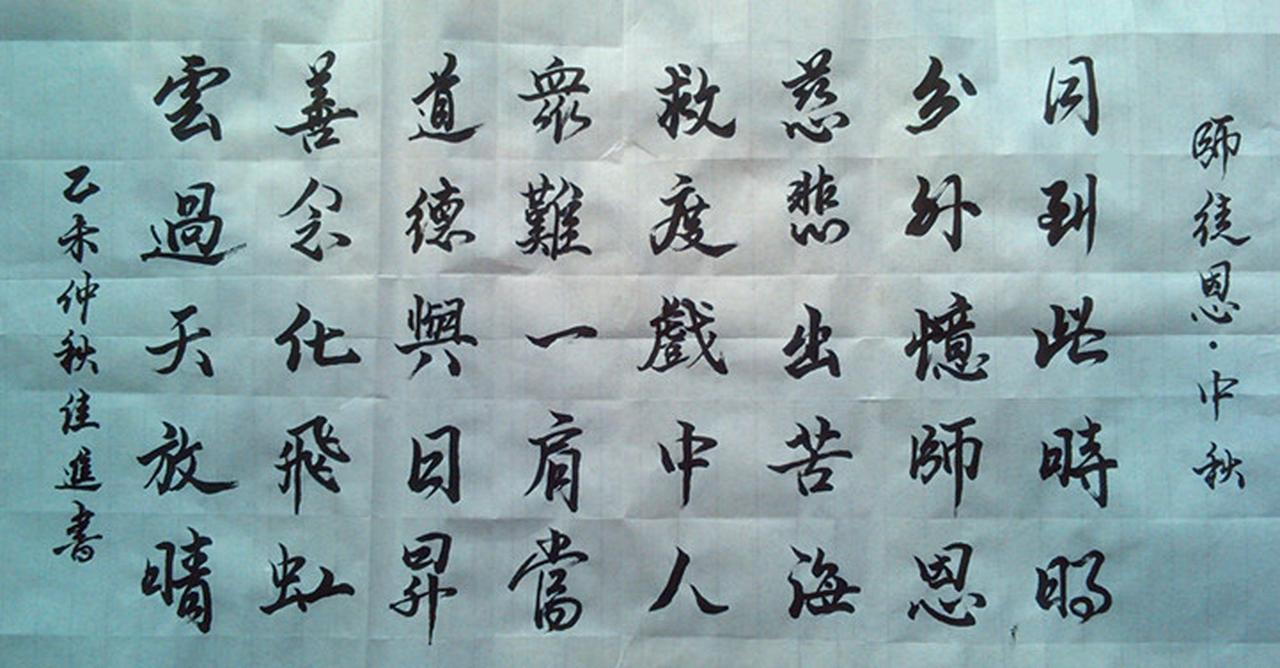 師徒恩·中秋
月到此時明
分外憶師恩
慈悲出苦海
救度戲中人
衆難一肩當
道德與日昇
善念化飛虹
雲過天放晴
乙未仲秋佳進書